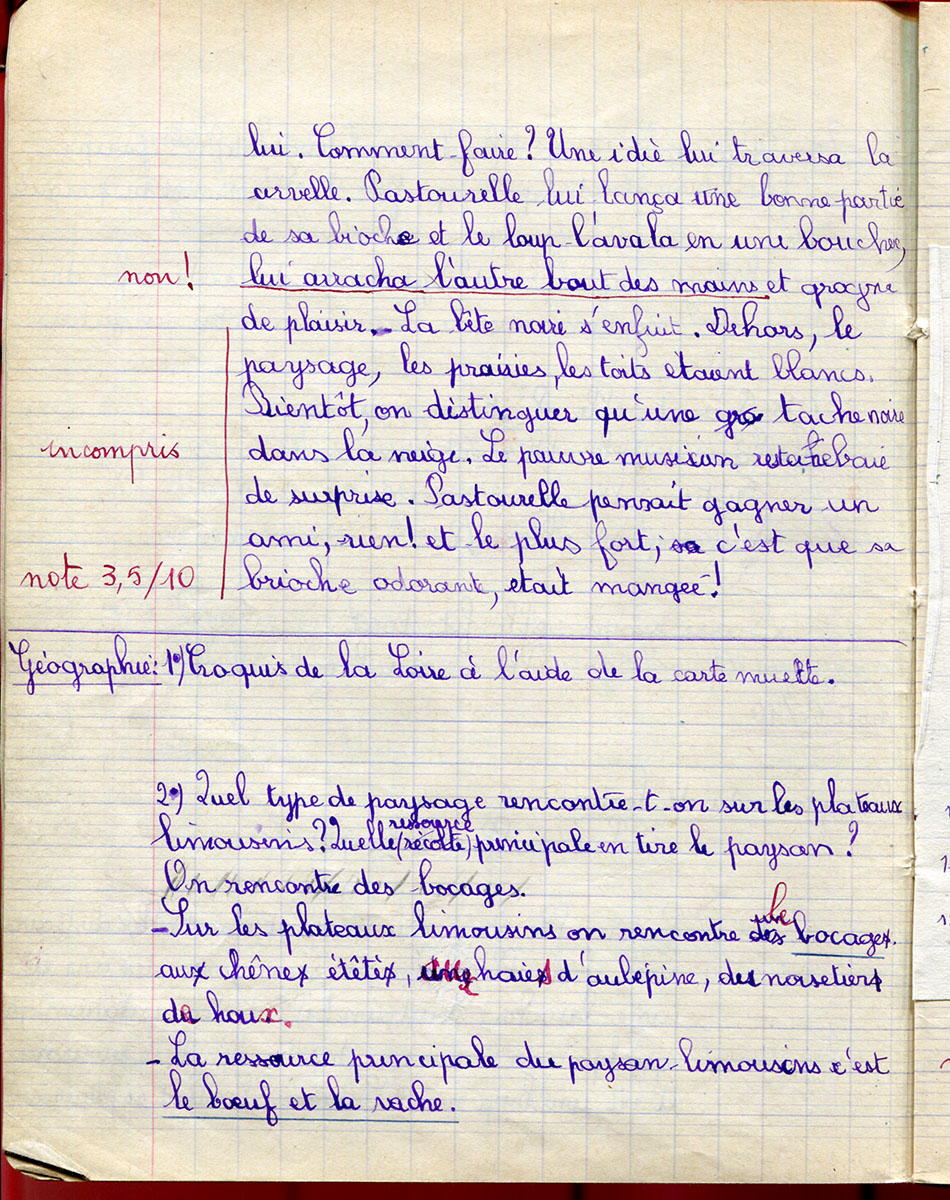 lui. Comment faire? Une idiè lui traversa la
cervelle. Pastourelle lui lança une bonne partie
de sa brioche et le loup l'avala en une bouchée,
non! lui arracha l'autre bout des mains et grogne
de plaisir. La bête noire s'enfuit. Dehors, le
paysage, les praisies, les toits étaient blancs.
Bientôt, on distinguer qu'une gro tache noire
incompris dans la neige. Le pauvre musicien resta bebaie
de surprise. Pastourelle pensait gagner un
ami, rien! et le plus fort, sa c'est que sa
note 3,5/10 brioche odorant, etait mangée!
Géographie: 1°) Croquis de la Loire à l'aide de la carte muette.
2°) Quel type de paysage rencontre-t-on sur les plateaux
ressource
limousins? Quelle (récolte) principale en tire le paysan?
On rencontre des bocages.
- Sur les plateaux limousins on rencontre des le bocages.
aux chênes étêtés, une haies d'aubépine, des noisetiers
de houx.
- La ressource principale du paysan limousins c'est
le bœuf et la vache.